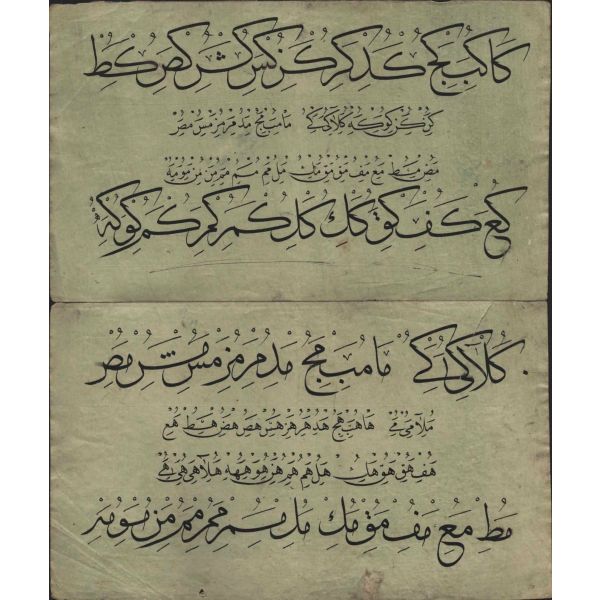 كا كب كج كد كر كز كس كش كص كط
كن كن كو كه كلا كى كے ما مب مج مد مر مز مس مص
مص مط مع مف مق مك مل مم مم من مو مه
كع كف كق كك كل كم كم كم كو كه
كلا كى كے ما مب مج مد مر مز مس مش مص
ملا مى مے ها هب هج هد هر هز هس هص هط هع
هف هق هك هل هم هم هن هو هه هلا هى هے
مط مع مف مق مك مل مم مم من مو مه